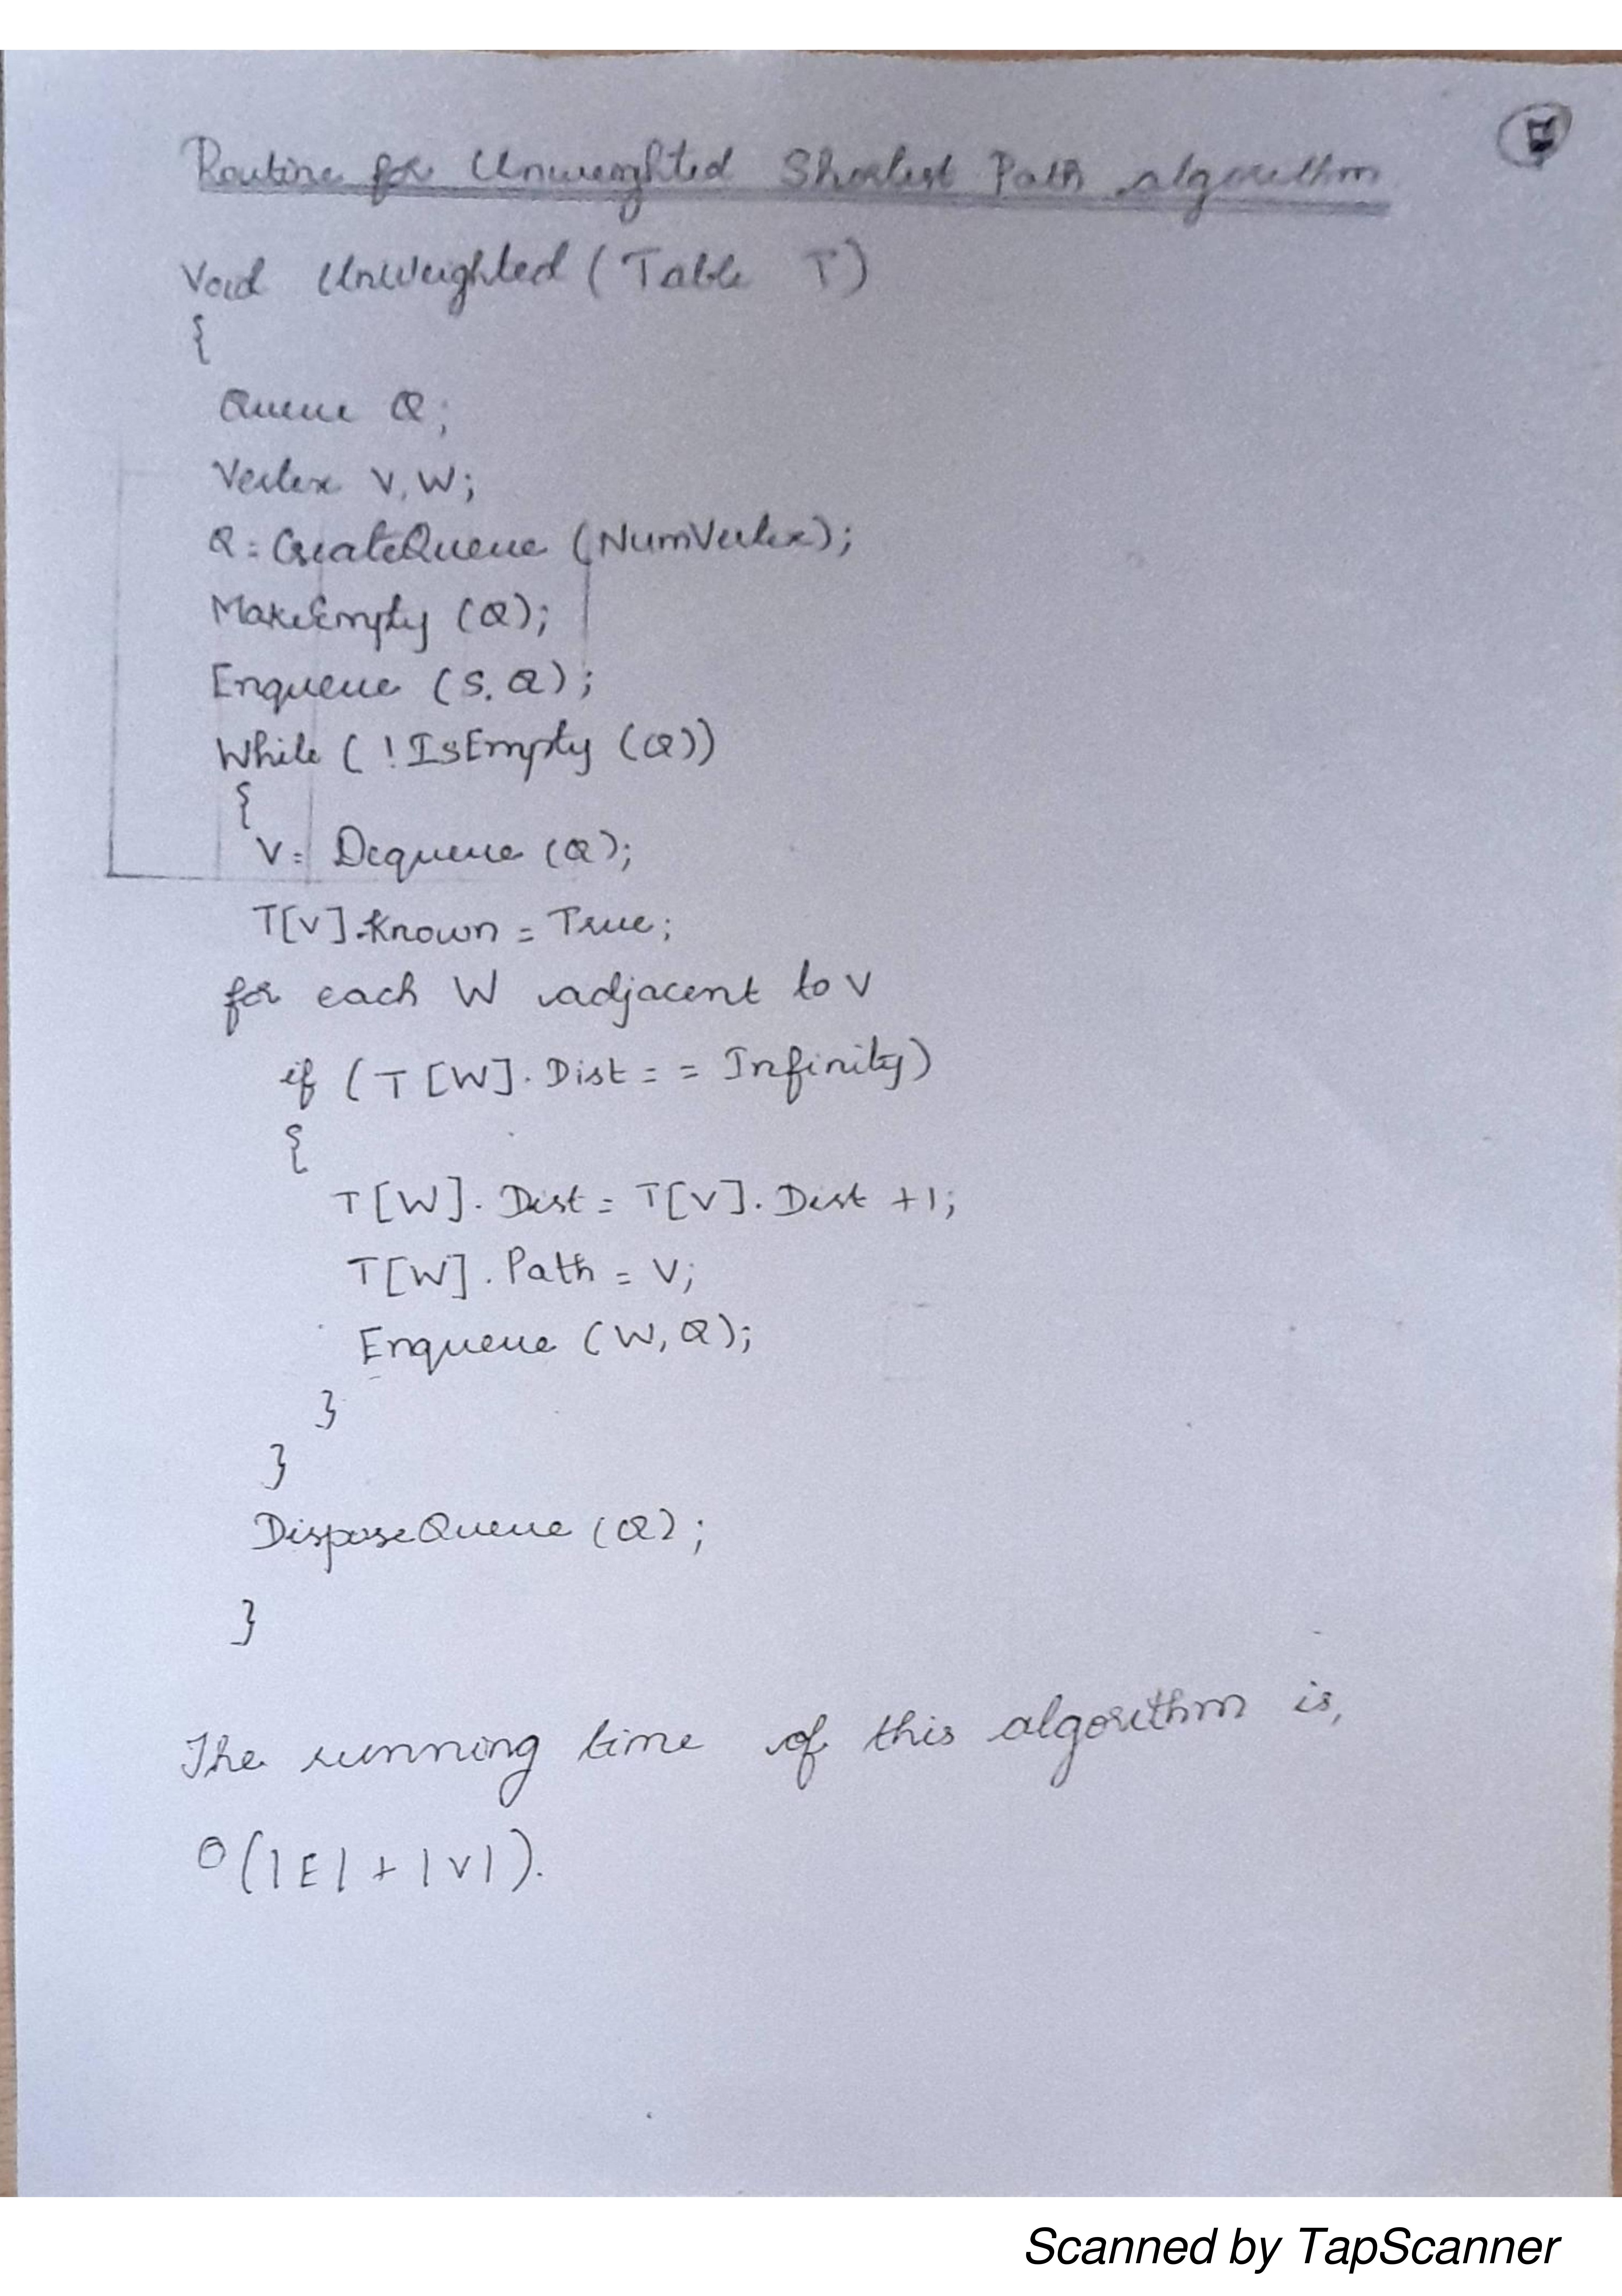 Routine for Unweighted Shortest Path algorithm
Void UnWeighted (Table T)
{
Queue Q;
Vertex V, W;
Q = CreateQueue (NumVertex);
MakeEmpty (Q);
Enqueue (S, Q);
While ( ! IsEmpty (Q))
{
V = Dequeue (Q);
T[V].Known = True;
for each W adjacent to V
if (T[W].Dist = = Infinity)
{
T[W].Dist = T[V].Dist +1;
T[W].Path = V;
Enqueue (W, Q);
}
}
DisposeQueue (Q);
}
The running time of this algorithm is,
O(|E| + |V|).
Scanned by TapScanner